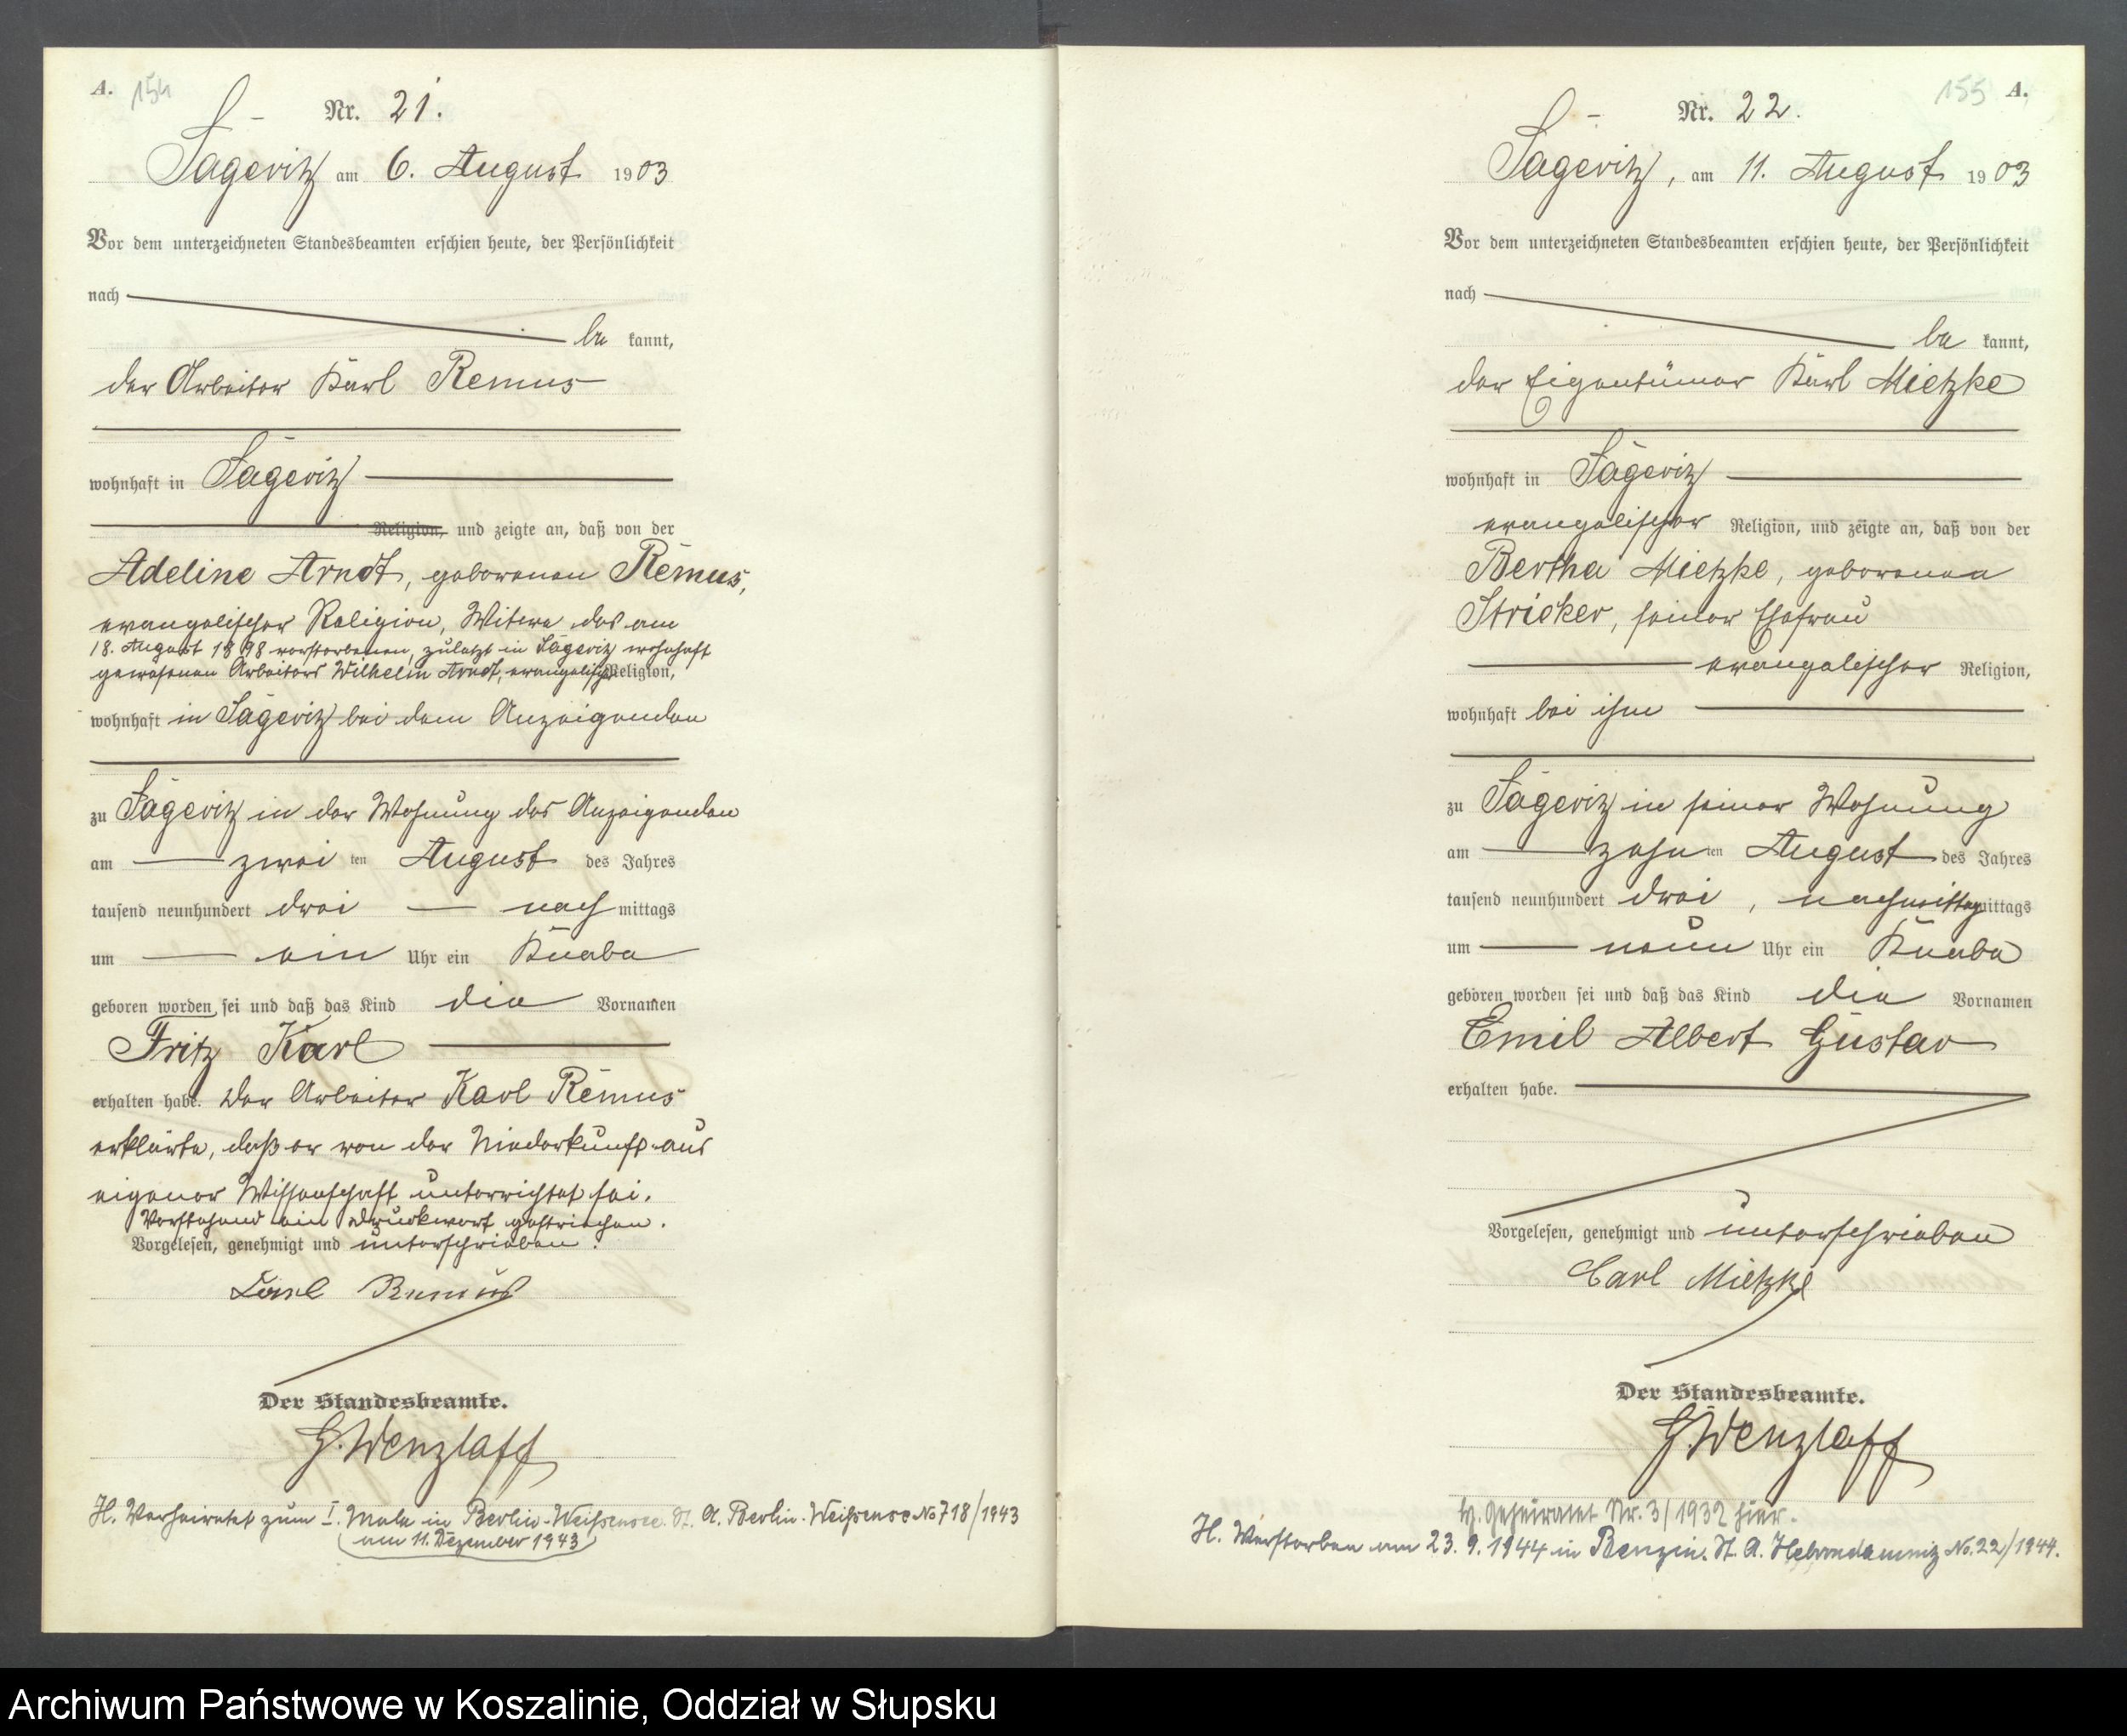 A. 154
Nr. 21.
Sageritz am 6. August 1903
Vor dem unterzeichneten Standesbeamten erschien heute, der Persönlichkeit
nach
be kannt,
der Arbeiter Karl Remus
wohnhaft in Sageritz
Religion, und zeigte an, daß von der
Adeline Arndt, geborenen Remus,
evangelischer Religion, Witwe des am
18. August 1898 verstorbenen, zuletzt in Sageritz wohnhaft
gewesenen Arbeiters Wilhelm Arndt, evangelischer Religion,
wohnhaft in Sageritz bei dem Anzeigenden
zu Sageritz in der Wohnung des Anzeigenden
am zwei ten August des Jahres
tausend neunhundert drei nach mittags
um ein Uhr ein Knabe
geboren worden sei und daß das Kind die Vornamen
Fritz Karl
erhalten habe. Der Arbeiter Karl Remus
erklärte, daß er von der Niederkunft aus
eigener Wissenschaft unterrichtet sei.
Vorstehend ein Druckwort gestrichen.
Vorgelesen, genehmigt und unterschrieben.
Karl Remus
Der Standesbeamte.
G. Wenzlaff
H. Verheiratet zum I. Male in Berlin-Weißensee. St. A. Berlin-Weißensee No 718/1943
am 11. Dezember 1943
155 A.
Nr. 22.
Sageritz, am 11. August 1903
Vor dem unterzeichneten Standesbeamten erschien heute, der Persönlichkeit
nach
be kannt,
der Eigentümer Karl Mietzke
wohnhaft in Sageritz
evangelischer Religion, und zeigte an, daß von der
Bertha Mietzke, geborenen
Stricker, seiner Ehefrau
evangelischer Religion,
wohnhaft bei ihm
zu Sageritz in seiner Wohnung
am zehn ten August des Jahres
tausend neunhundert drei, nachmittag mittags
um neun Uhr ein Knabe
geboren worden sei und daß das Kind die Vornamen
Emil Albert Gustav
erhalten habe.
Vorgelesen, genehmigt und unterschrieben
Carl Mietzke
Der Standesbeamte.
G. Wenzlaff
H. Geheiratet Nr. 3/1932 hier.
H. Verstorben am 23. 9. 1944 in Benzin. St. A. Hebrondamnitz No. 22/1944.
Archiwum Państwowe w Koszalinie, Oddział w Słupsku